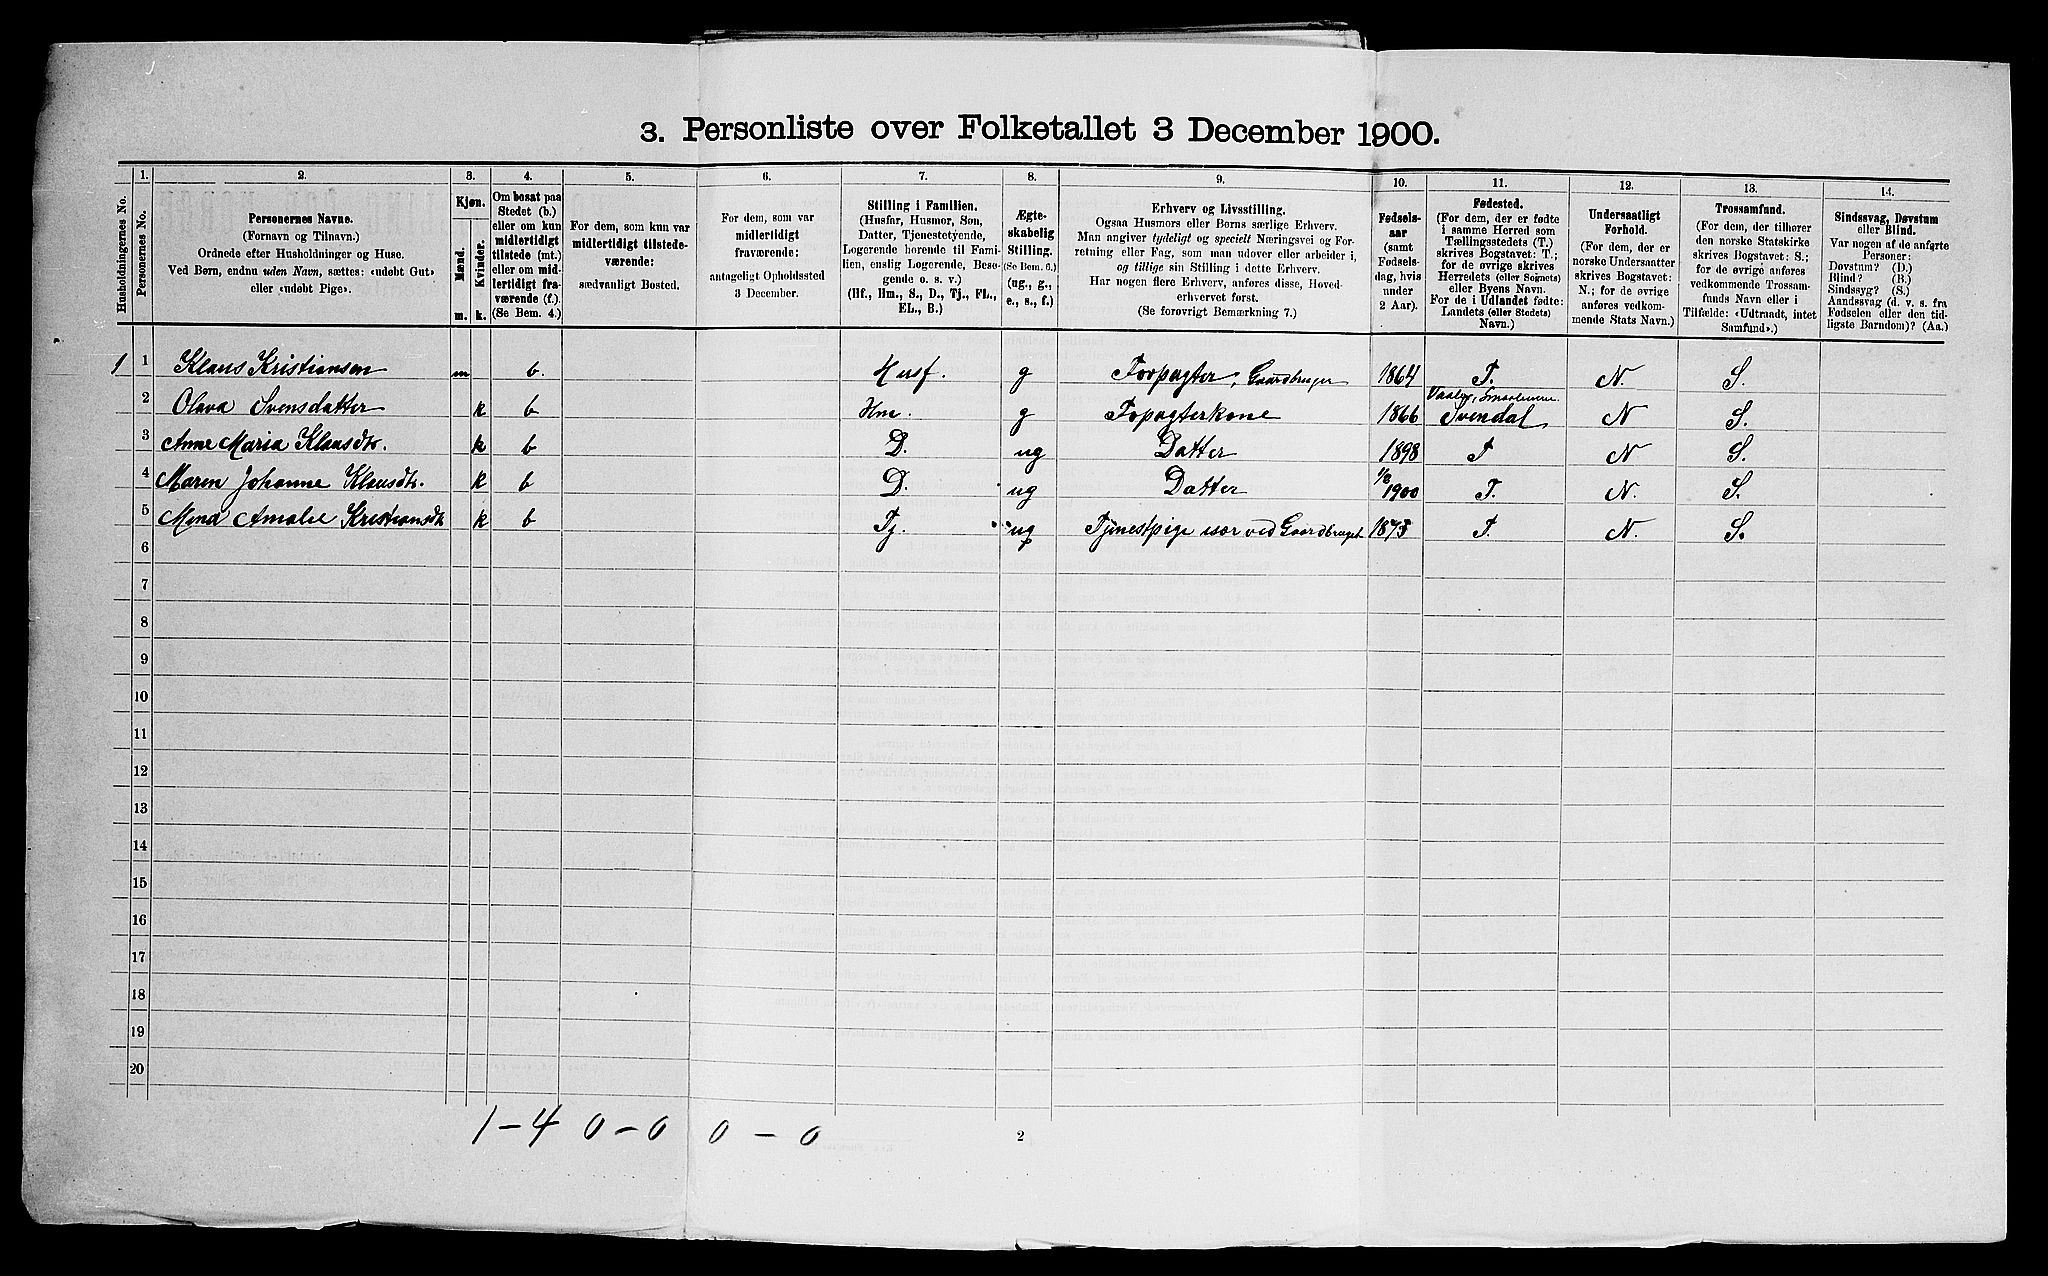 3. Personliste over Folketallet 3 December 1900.
1. 2. 3. 4. 5. 6. 7. 8. 9. 10. 11. 12. 13. 14.
Husholdningernes No.
Personernes No.
Personernes Navne.
(Fornavn og Tilnavn.)
Ordnede efter Husholdninger og Huse.
Ved Børn, endnu uden Navn, sættes: «udøbt Gut»
eller «udøbt Pige».
Kjøn.
Mænd.
Kvinder.
m. k.
Om bosat paa
Stedet (b.)
eller om kun
midlertidigt
tilstede (mt.)
eller om mid-
lertidigt fra-
værende (f.)
(Se Bem. 4.)
For dem, som kun var
midlertidigt tilstede-
værende:
sædvanligt Bosted.
For dem, som var
midlertidigt
fraværende:
antageligt Opholdssted
3 December.
Stilling i Familien.
(Husfar, Husmor, Søn,
Datter, Tjenestetyende,
Logerende hørende til Fami-
lien, enslig Logerende, Besø-
gende o. s. v.)
(Hf., Hm., S., D., Tj., FL.,
EL., B.)
Ægte-
skabelig
Stilling.
(Se Bem. 6.)
(ug., g.,
e., s., f.)
Erhverv og Livsstilling.
Ogsaa Husmors eller Børns særlige Erhverv.
Man angiver tydeligt og specielt Næringsvei og For-
retning eller Fag, som man udøver eller arbeider i,
og tillige sin Stilling i dette Erhverv.
Har nogen flere Erhverv, anføres disse, Hoved-
erhvervet først.
(Se forøvrigt Bemærkning 7.)
Fødsels-
aar
(samt
Fødsels-
dag, hvis
under
2 Aar).
Fødested.
(For dem, der er fødte
i samme Herred som
Tællingsstedets (T.)
skrives Bogstavet: T.;
for de øvrige skrives
Herredets (eller Sognets)
eller Byens Navn.
For de i Udlandet fødte:
Landets (eller Stedets)
Navn.)
Undersaatligt
Forhold.
(For dem, der er
norske Undersaatter
skrives Bogstavet:
N.; for de øvrige
anføres vedkom-
mende Stats Navn.)
Trossamfund.
(For dem, der tilhører
den norske Statskirke
skrives Bogstavet: S.;
for de øvrige anføres
vedkommende Trossam-
funds Navn eller i
Tilfælde: «Udtraadt, intet
Samfund».)
Sindssvag, Døvstum
eller Blind.
Var nogen af de anførte
Personer:
Døvstum? (D.)
Blind? (B.)
Sindssyg? (S.)
Aandssvag (d. v. s. fra
Fødselen eller den tid-
ligste Barndom)? (Aa.)
1 1 Klaus Kristiansen m b. Husf. g Forpagter, Gaardbruger 1864 T. N. S.
Vaaler, Smaalenene
2 Olava Svensdatter k b Hm. g Fopagterkone 1866 Svendal N S.
3 Anne Maria Klausdtr. k b D. ug Datter 1898 T N S.
4 Maren Johanne Klausdtr. k b D. ug Datter 1/8 1900 T. N. S.
5 Mina Amalie Kristiansdt k b Tj. ug Tjinestpige isor ved Gaardbruget 1873 T. N. S.
6
7
8
9
10
11
12
13
14
15
16
17
18
19
20
1 – 4 0 – 0 0 – 0
2